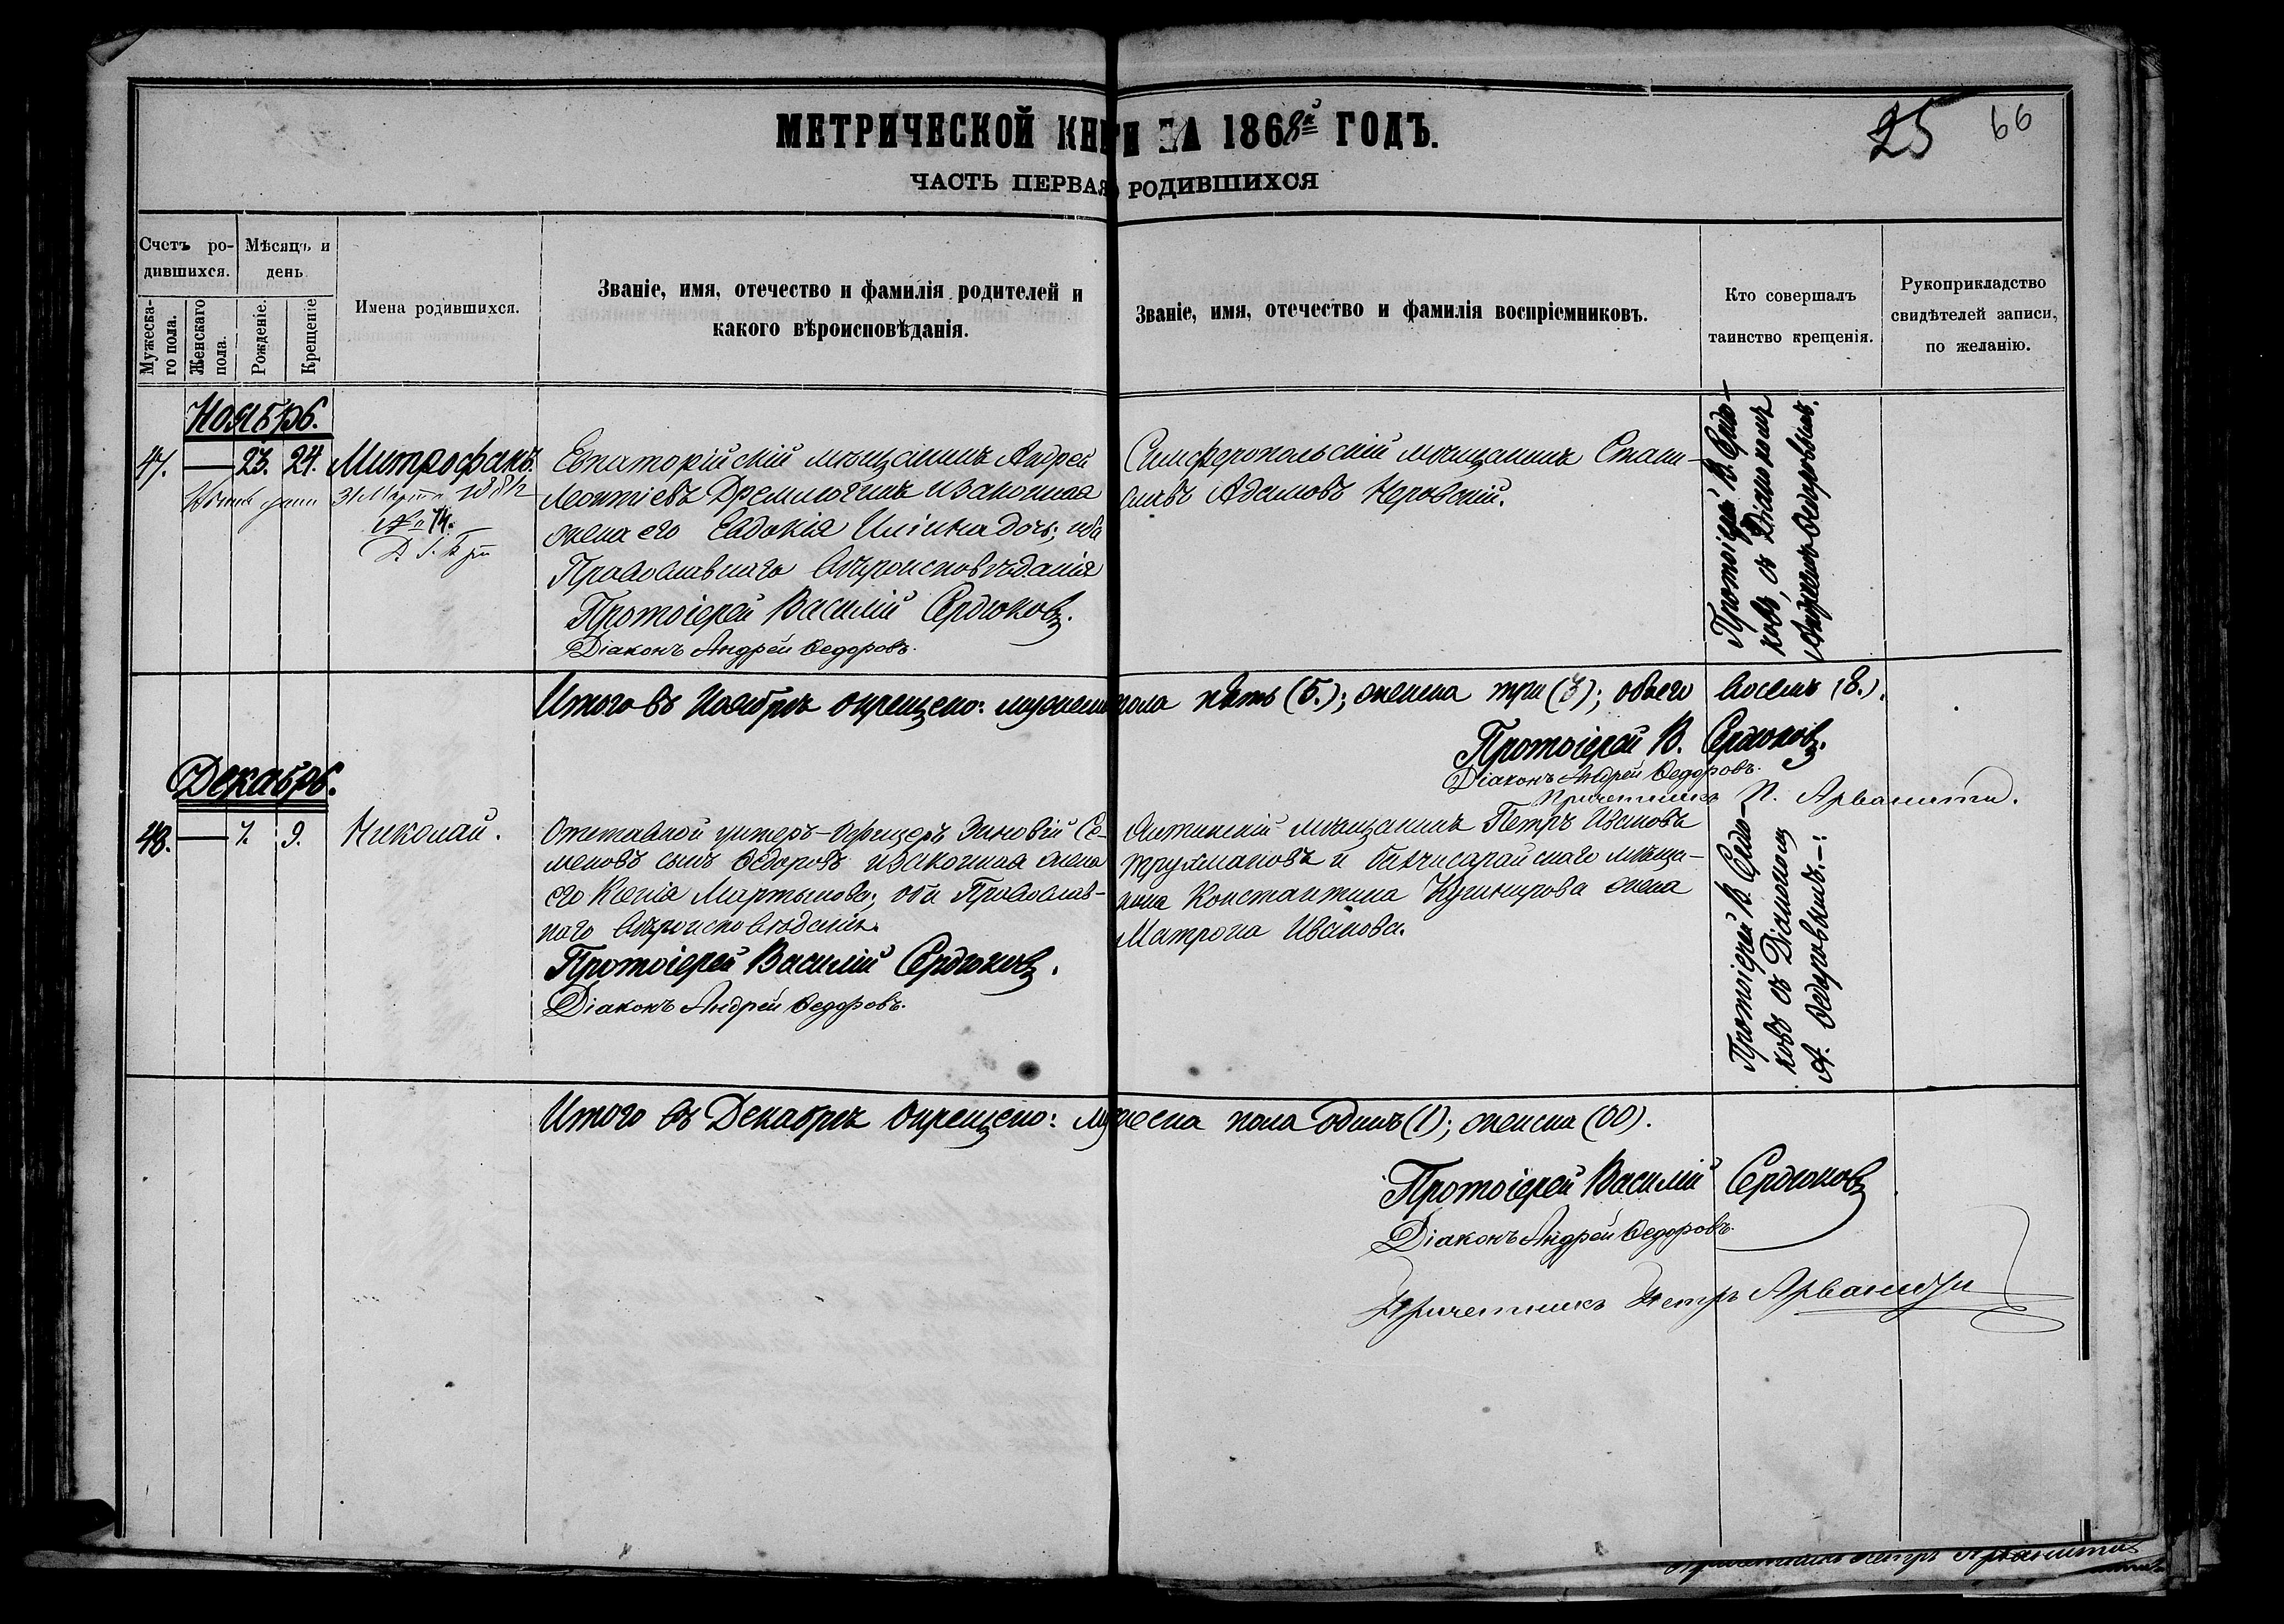 МЕТРИЧЕСКОЙ КНИГИ ЗА 1868й ГОДЪ.
25 66
ЧАСТЬ ПЕРВАЯ, РОДИВШИХСЯ
Счетъ ро-
дившихся.
Мужеска-
го пола.
Женскаго
пола.
Мѣсяцъ и
день
Рожденіе.
Крещеніе
Имена родившихся.
Званіе, имя, отечество и фамилія родителей и
какого вѣроисповѣданія.
Званіе, имя, отечество и фамилія воспріемниковъ.
Кто совершалъ
таинство крещенія.
Рукоприкладство
свидѣтелей записи,
по желанію.
Ноябрь.
47. — 23. 24. Митрофанъ.
31 Марта
№ 74.
Евпаторійскій мѣщанинъ Андрей
Леонтіевъ и законная
жена его Евдокія дочь; оба
Православнаго Вѣроисповѣданія
Протоіерей Василій Сердюковъ.
Діаконъ Андрей Ѳедоровъ.
Симферопольскій мѣщанинъ
Адамовъ
Протоіерей В. Сердю-
ковъ, съ Діакономъ
Андреемъ Ѳедоровымъ.
Итого въ Ноябрѣ окрещено: мужеска пола пять (5.); женска три (3); обоего восемь (8.).
Протоіерей В. Сердюковъ.
Діаконъ Андрей Ѳедоровъ.
Причетникъ П. Арванити.
Декабрь.
48. — 7. 9. Николай.
Отставной унтеръ-Офицеръ Зиновій Се-
меновъ сынъ Ѳедоровъ и законная жена
его Ксенія Мартынова; оба Православ-
наго Вѣроисповѣданія.
Протоіерей Василій Сердюковъ.
Діаконъ Андрей Ѳедоровъ.
Ялтинскій мѣщанинъ Петръ Ивановъ
Трухмановъ и бахчисарайскаго мѣща-
нина Константина Кушнирова жена
Матрона Иванова.
Протоіерей В. Сердю-
ковъ съ Діакономъ
А. Ѳедоровымъ.—:
Итого въ Декабрѣ окрещено: мужеска пола одинъ (1); женска (00).
Протоіерей Василій Сердюковъ
Діаконъ Андрей Ѳедоровъ.
Причетникъ Петръ Арванити
Причетникъ Петръ Арванити